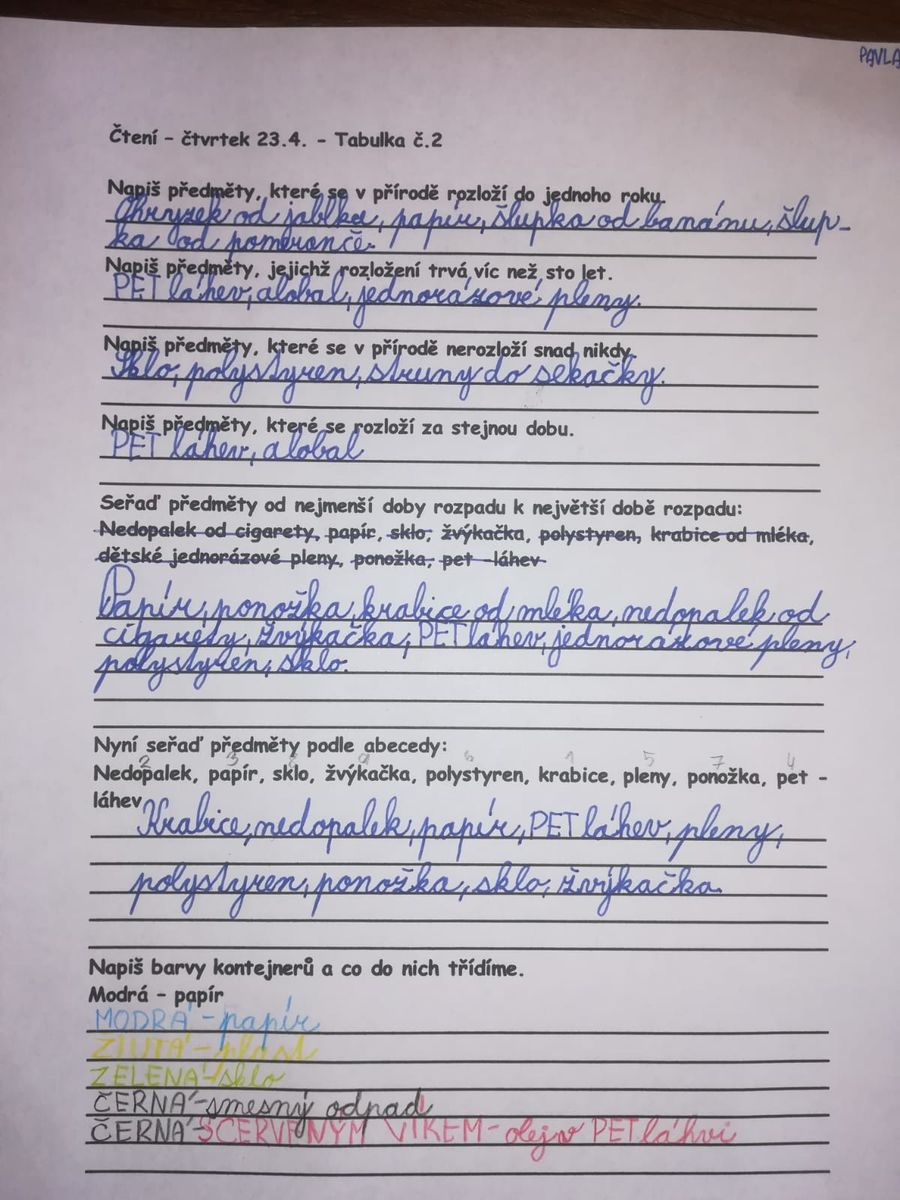 PAVLA
Čtení – čtvrtek 23.4. – Tabulka č.2
Napiš předměty, které se v přírodě rozloží do jednoho roku.
Ohryzek od jablka, papír, šlupka od banánu, šlup-
ka od pomeranče.
Napiš předměty, jejichž rozložení trvá víc než sto let.
PET láhev, alobal, jednorázové pleny.
Napiš předměty, které se v přírodě nerozloží snad nikdy.
Sklo, polystyren, struny do sekačky.
Napiš předměty, které se rozloží za stejnou dobu.
PET láhev, alobal
Seřaď předměty od nejmenší doby rozpadu k největší době rozpadu:
Nedopalek od cigarety, papír, sklo, žvýkačka, polystyren, krabice od mléka,
dětské jednorázové pleny, ponožka, pet -láhev
Papír, ponožka, krabice od mléka, nedopalek od
cigarety, žvýkačka, PET láhev, jednorázové pleny,
polystyren, sklo.
Nyní seřaď předměty podle abecedy:
2 3 8 9 6 1 5 7 4
Nedopalek, papír, sklo, žvýkačka, polystyren, krabice, pleny, ponožka, pet –
láhev
Krabice, nedopalek, papír, PET láhev, pleny,
polystyren, ponožka, sklo, žvýkačka.
Napiš barvy kontejnerů a co do nich třídíme.
Modrá – papír
MODRÁ – papír
ŽLUTÁ – plast
ZELENÁ – sklo
ČERNÁ – smesný odpad
ČERNÁ – S ČERVENÝM VÍKEM – olej v PET láhvi